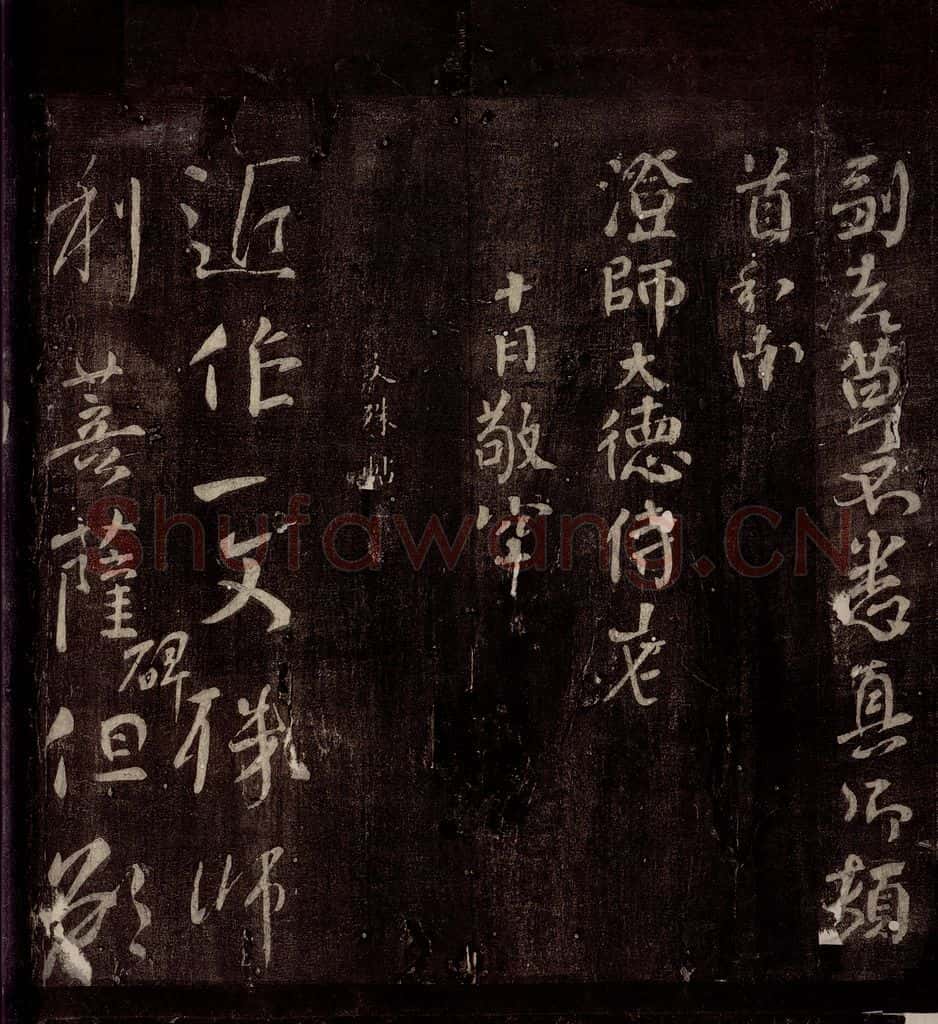 老草不悉真卿頓
首和南
澄師大德侍者
十月敬空
文殊帖
近作一文殊師
利菩薩碑但欲
Shufawang.CN